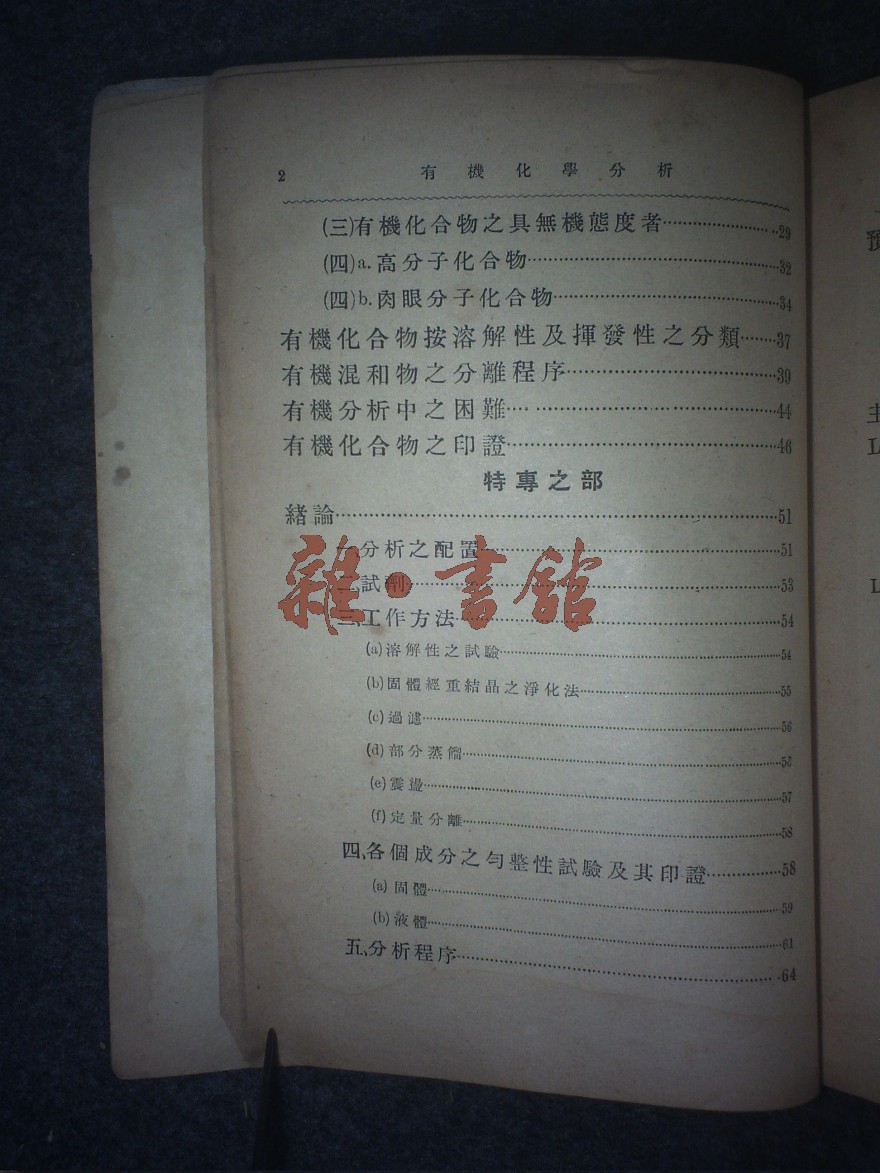 2 有機化學分析
(三)有機化合物之具無機態度者……29
(四)a.高分子化合物……32
(四)b.肉眼分子化合物……34
有機化合物按溶解性及揮發性之分類……37
有機混和物之分離程序……39
有機分析中之困難……44
有機化合物之印證……46
特專之部
緒論……51
一、分析之配置……51
二、試劑……53
三、工作方法……54
(a)溶解性之試驗……54
(b)固體經重結晶之淨化法……55
(c)過濾……56
(d)部分蒸餾……
(e)震盪……57
(f)定量分離……58
四、各個成分之勻整性試驗及其印證……58
(a)固體……59
(b)液體……61
五、分析程序……64
雜·書館
預
主
L
L